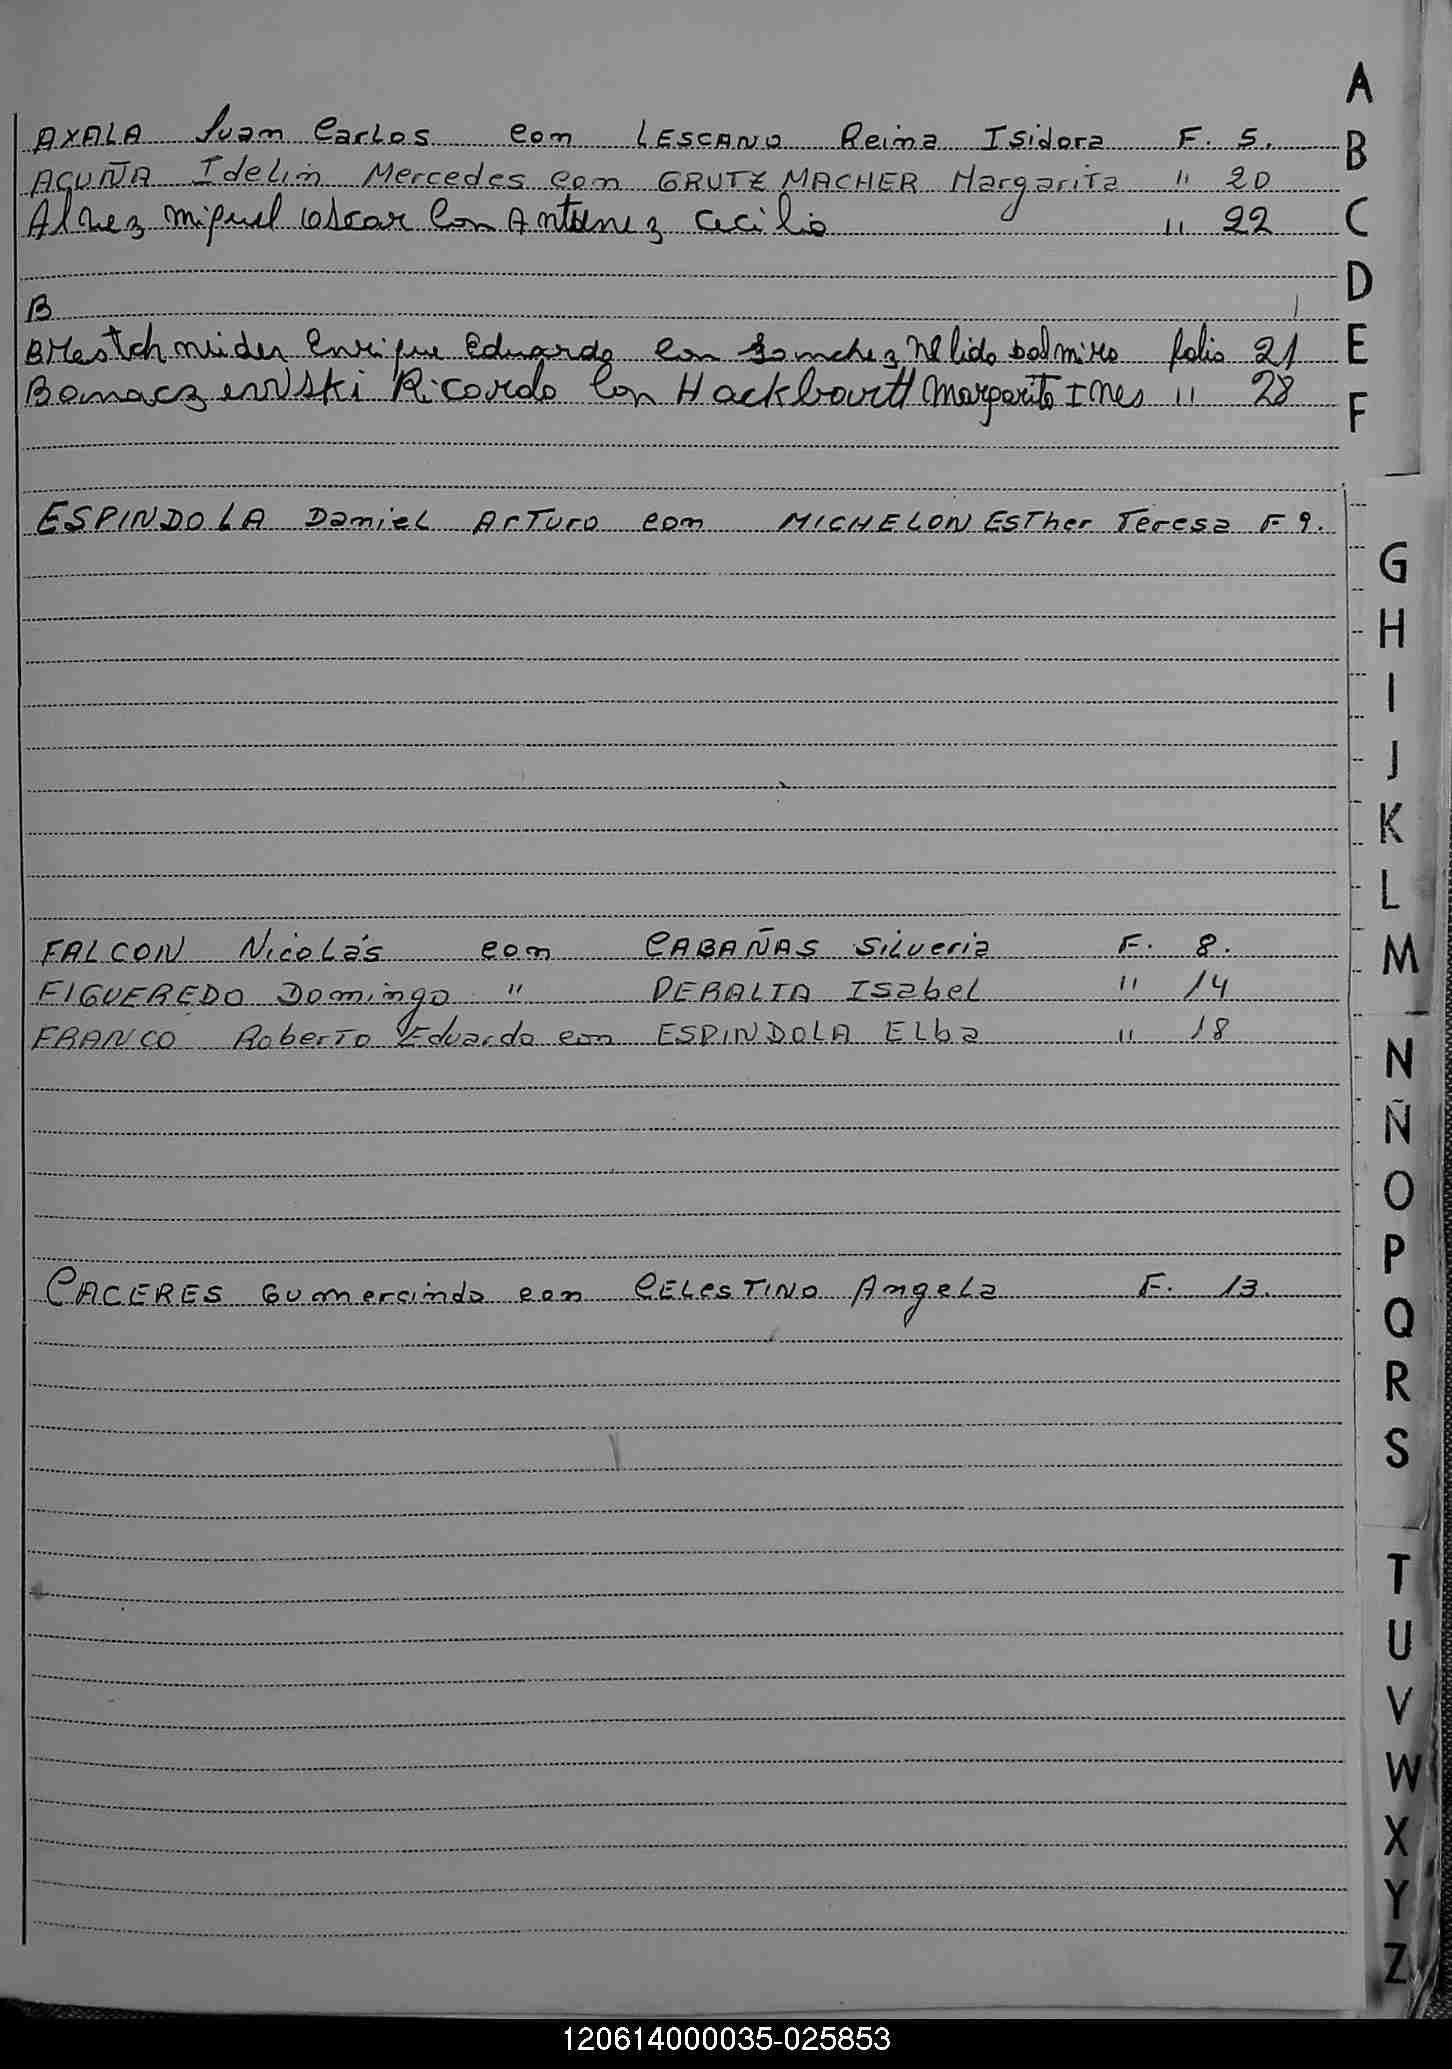 AXALA Juan Carlos con LESCANO Reina Isidora F. 5.
ACUÑA Idelin Mercedes con GRUTZMACHER Margarita " 20
Alvez Miguel Oscar Con Antunez Cecilia " 22
B
Enrique Eduardo con Sanchez Nelida folio 21
Ricardo Con Margarita Ines " 28
ESPINDOLA Daniel Arturo con MICHELON Esther Teresa F 9.
FALCON Nicolás con CABAÑAS Silveria F. 8.
FIGUEREDO Domingo " PERALTA Isabel " 14
FRANCO Roberto Eduardo con ESPINDOLA Elba " 18
CACERES Gumercindo con CELESTINO Angela F. 13.
A
B
C
D
E
F
G
H
I
J
K
L
M
N
Ñ
O
P
Q
R
S
T
U
V
W
X
Y
Z
120614000035-025853